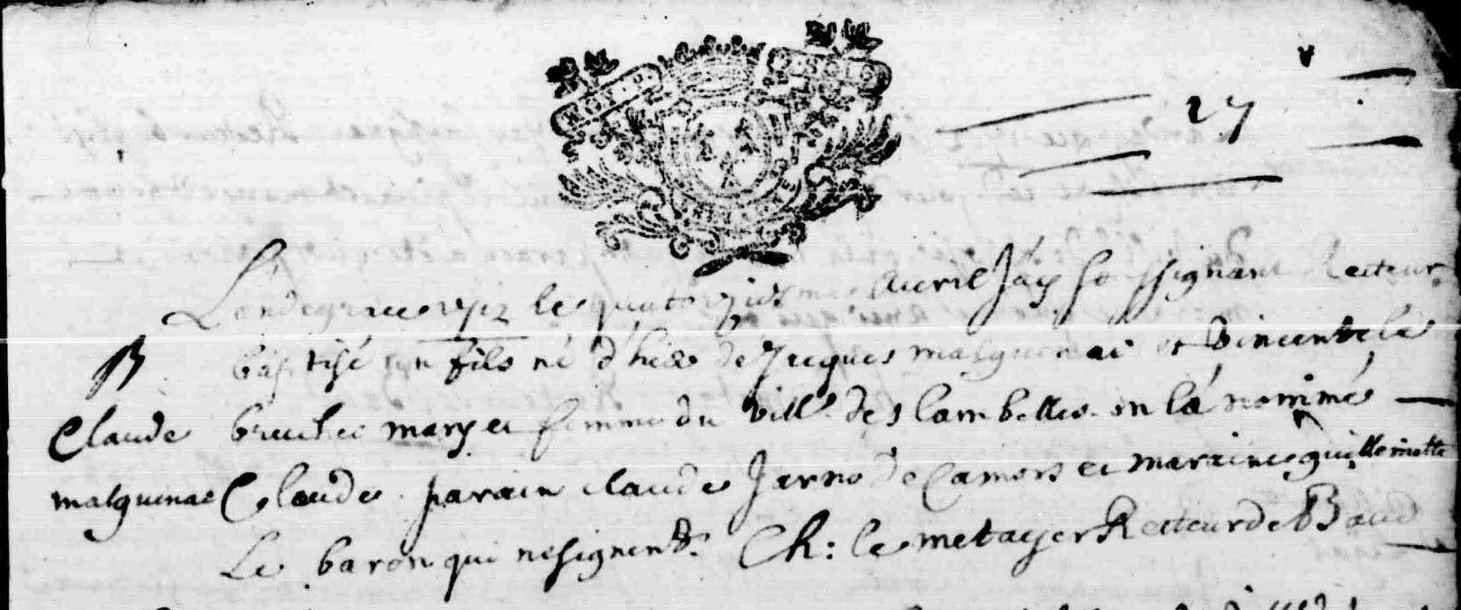 27
Landegrace le quatorziesme Avril Jay soussignant Recteur
B baptisé un fils né d'hier de Jacques malguenac et Vincente le
Claude breuhec mary et femme du vill. des lambelles on lá nommé
malguenac Claude. parain claude Jarno de Camors et maraine guillemette
Le baron qui ne signent. Ch: le metayer Recteur de Baud